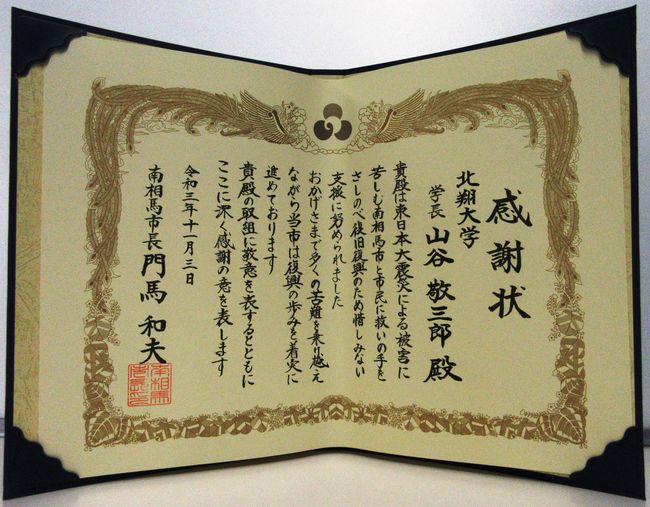 感謝状
北翔大学
学長 山谷 敬三郎 殿
貴殿は東日本大震災による被害に
苦しむ南相馬市と市民に救いの手を
さしのべ復旧復興のため惜しみない
支援に努められました
おかげさまで多くの苦難を乗り越え
ながら当市は復興の歩みを着実に
進めております
貴殿の取組に敬意を表するとともに
ここに深く感謝の意を表します
令和三年十一月三日
南相馬市長 門馬 和夫
南相馬
市長之印